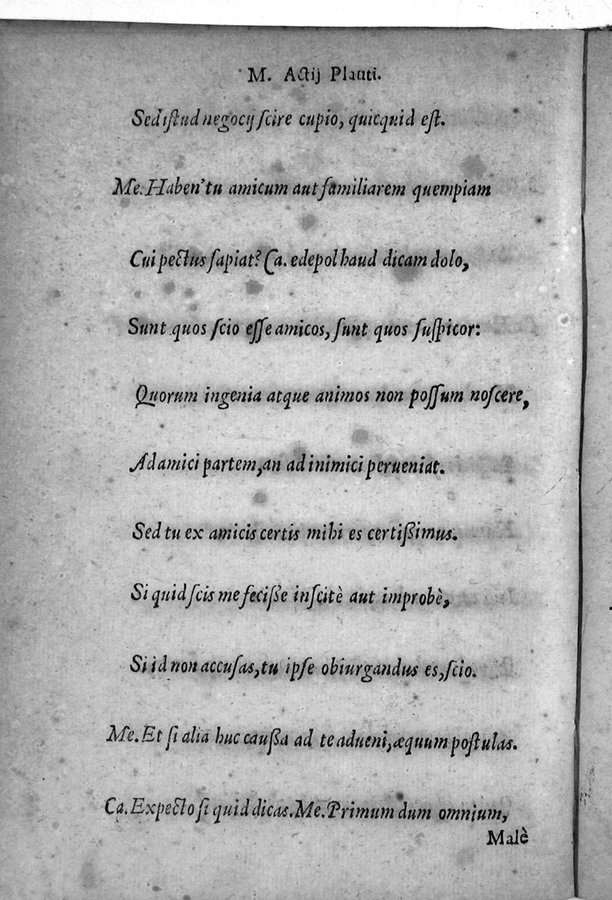 M. Actij Plauti.
Sed istud negocij scire cupio, quicquid est.
Me. Haben' tu amicum aut familiarem quempiam
Cui pectus sapiat? Ca. edepol haud dicam dolo,
Sunt quos scio esse amicos, sunt quos suspicor:
Quorum ingenia atque animos non possum noscere,
Ad amici partem, an ad inimici perueniat.
Sed tu ex amicis certis mihi es certißimus.
Si quid scis me fecisse inscitè aut improbè,
Si id non accusas, tu ipse obiurgandus es, scio.
Me. Et si alia huc caußa ad te adueni, æquum postulas.
Ca. Expecto si quid dicas. Me. Primum dum omnium,
Malè